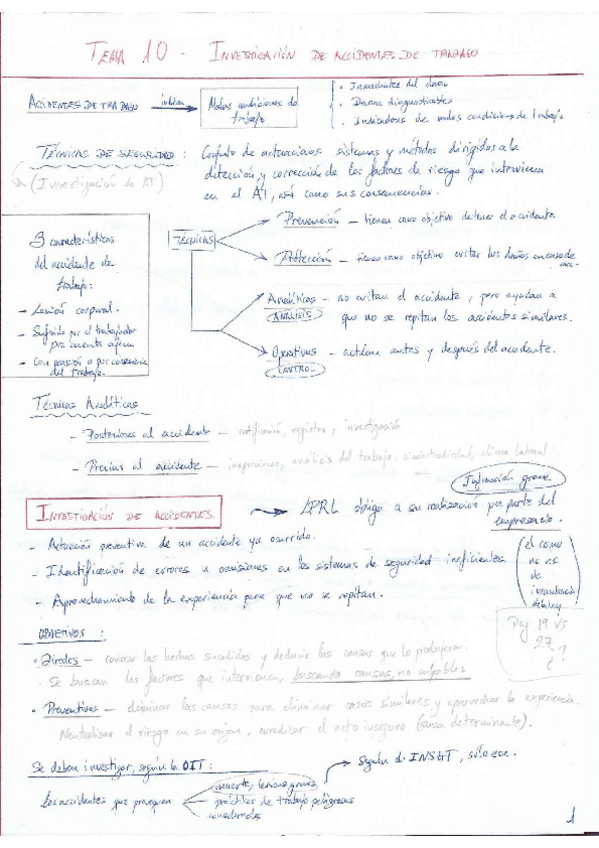 TEMA 10 - INVESTIGACIÓN DE ACCIDENTES DE TRABAJO
ACCIDENTES DE TRABAJO
indican
Malas condiciones de trabajo
· Inmediatos del
· Daños diagnosticables
· Indicadores de malas condiciones de trabajo
TÉCNICAS DE SEGURIDAD: Conjunto de actuaciones sistemas y métodos dirigidos a la
(Investigación de AT)
detección y corrección de los factores de riesgo que intervienen
en el AT, así como sus consecuencias.
3 características
del accidente de
trabajo:
- Lesión corporal.
- Sufrida por el trabajador
por cuenta ajena
- Con ocasión o por consecuencia
del trabajo.
TÉCNICAS
Prevención - tienen como objetivo detener el accidente
Protección - tienen como objetivo evitar los daños en caso de
acc.
Analíticas - no evitan el accidente, pero ayudan a
ANÁLISIS
que no se repitan los accidentes similares.
Operativas - actúan antes y después del accidente.
CONTROL
Técnicas Analíticas
- Posteriores al accidente - notificación, registro, investigación
- Previas al accidente - inspecciones, análisis del trabajo, siniestralidad, clima laboral.
Infracción grave
INVESTIGACIÓN DE ACCIDENTES
LPRL obliga a su realización por parte del
empresario.
- Actuación preventiva de un accidente ya ocurrido.
- Identificación de errores u omisiones en los sistemas de seguridad ineficientes
- Aprovechamiento de la experiencia para que no se repitan.
(el como
no es
de
incumbencia
de la ley)
Pag 19 vs
27
?
OBJETIVOS:
· Directos - conocer los hechos sucedidos y deducir las causas que lo produjeron.
· Se buscan los factores que intervienen, buscando causas, no culpables
· Preventivos - eliminar las causas para eliminar casos similares y aprovechar la experiencia.
Neutralizar el riesgo en su origen, erradicar el acto inseguro (causa determinante).
Se deben investigar, según la OIT:
Según el INSHT, sólo ese.
Los accidentes que provoquen
muerte, lesiones graves,
prácticas de trabajo peligrosas
1